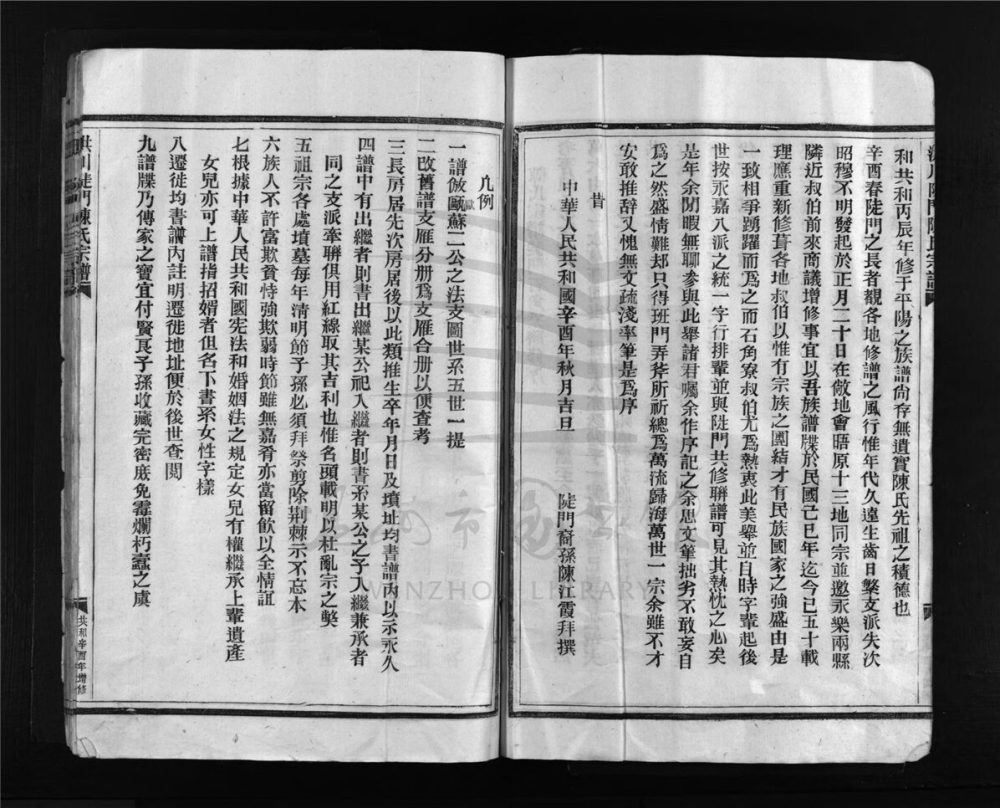 和共和丙辰年修于平陽之族譜尙存無遺實陳氏先祖之積德也
辛酉春陡門之長者覩各地修譜之風行惟年代久遠生齒日繁支派失次
昭穆不明發起於正月二十日在敝地會晤原十三地同宗並邀永樂兩縣
隣近叔伯前來商議增修事宜以吾族譜牒於民國己巳年迄今已五十載
理應重新修葺各地叔伯以惟有宗族之團結才有民族國家之強盛由是
一致相爭踴躍而爲之而石角寮叔伯尤爲熱衷此美舉並自時字輩起後
世按永嘉八派之統一字行排輩並與陡門共修聯譜可見其熱忱之心矣
是年余閒暇無聊參與此舉諸君囑余作序記之余思文筆拙劣不敢妄自
爲之然盛情難却只得班門弄斧所祈總爲萬流歸海萬世一宗余雖不才
安敢推辞又愧無文疏淺率筆是爲序
昔
中華人民共和國辛酉年秋月吉旦 陡門裔孫陳江霞拜撰
凡例
一譜倣歐蘇二公之法支圖世系五世一提
二改舊譜支雁分册爲支雁合册以便查考
三長房居先次房居後以此類推生卒年月日及墳址均書譜內以示永久
四譜中有出繼者則書出繼某公祀入繼者則書系某公之子入繼兼承者
同之支派牽聯俱用紅線取其吉利也惟名頭載明以杜亂宗之獘
五祖宗各處墳墓每年清明節子孫必須拜祭剪除荆棘示不忘本
六族人不許富欺貧恃強欺弱時節雖無嘉肴亦當留飲以全情誼
七根據中華人民共和國宪法和婚姻法之規定女兒有權繼承上輩遺產
女兒亦可上譜指招婿者但名下書系女性字樣
八遷徙均書譜內註明遷徙地址便於後世查閱
九譜牒乃傳家之寶宜付賢良子孫收藏完密庶免霉爛朽蠹之虞
洪川陡門陳氏宗譜
共和辛酉年增修
WENZHOU LIBRARY